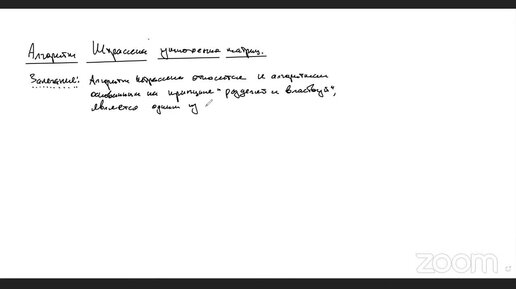 Алгоритм Штрассена умножения матриц.
Замечание: Алгоритм Штрассена относится к алгоритмам
основанным на принципе "разделяй и властвуй",
является одним из
zoom